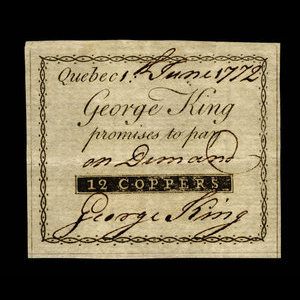 Quebec 1st June 1772
George King
promises to pay
on Demand
12 COPPERS
George King